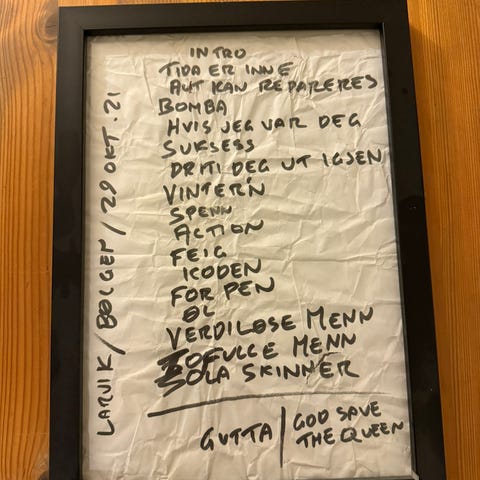 INTRO
TIDA ER INNE
ALT KAN REPARERES
BOMBA
HVIS JEG VAR DEG
SUKSESS
DRITI DEG UT IGJEN
VINTER'N
SPENN
ACTION
FEIG
KODEN
FOR PEN
ØL
VERDILØSE MENN
TOFULLE MENN
SOLA SKINNER
GUTTA / GOD SAVE
THE QUEEN
LARVIK / BØLGEN / 29 OKT. 21